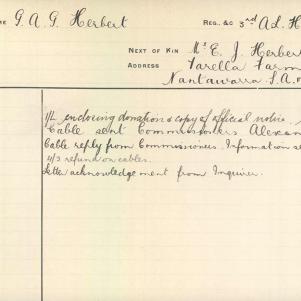 ME G. A. G. Herbert REG. &C 3rd A L H
NEXT OF KIN Mr E. J. Herber
ADDRESS Varella Farm
Nantawarra S.A.
I/L enclosing donation & copy of official notice.
Cable sent Commissioners Alexan
Cable reply from Commissioners. Information se
4/3 refund on cables.
Letter acknowledgement from Inquirer.